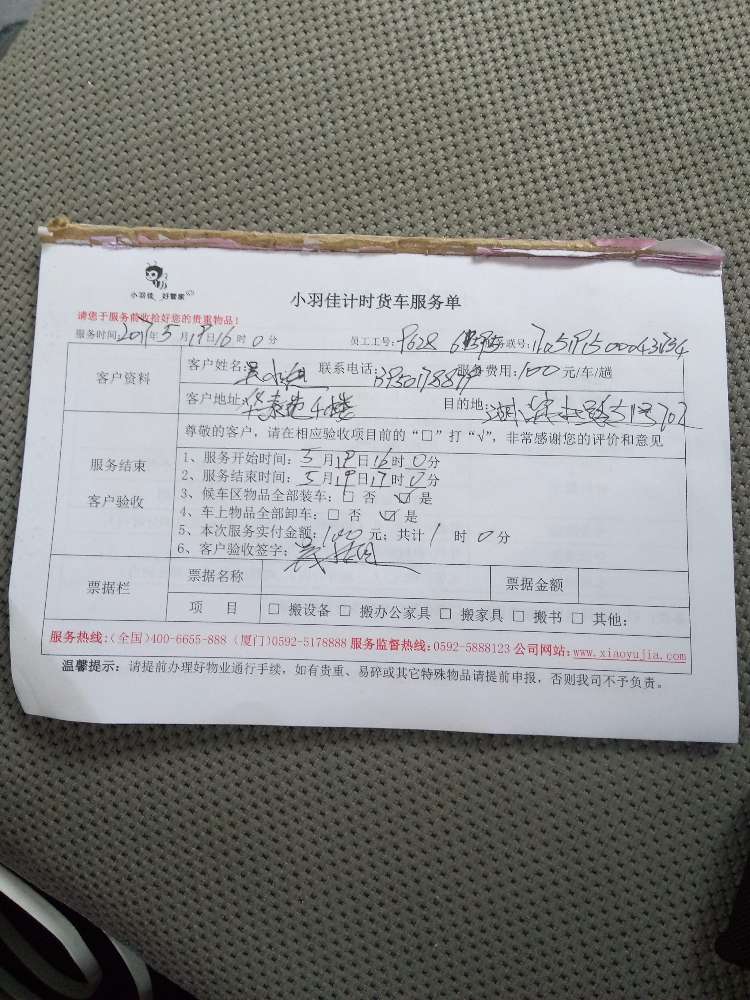 小羽佳 好管家
小羽佳计时货车服务单
请您于服务前收拾好您的贵重物品！
服务时间:2017年5月19日16时0分 员工工号: 联号:
客户资料
客户姓名: 联系电话: 服务费用:100元/车/趟
客户地址: 目的地:
服务结束
客户验收
尊敬的客户，请在相应验收项目前的“□”打“√”，非常感谢您的评价和意见
1、服务开始时间:5月19日16时0分
2、服务结束时间:5月19日17时0分
3、候车区物品全部装车:□ 否 ☑ 是
4、车上物品全部卸车:□ 否 ☑ 是
5、本次服务实付金额:100元；共计1时0分
6、客户验收签字:
票据栏
票据名称 票据金额
项 目 □ 搬设备 □ 搬办公家具 □ 搬家具 □ 搬书 □ 其他:
服务热线:(全国)400-6655-888 (厦门)0592-5178888 服务监督热线:0592-5888123 公司网站:www.xiaoyujia.com
温馨提示: 请提前办理好物业通行手续，如有贵重、易碎或其它特殊物品请提前申报，否则我司不予负责。